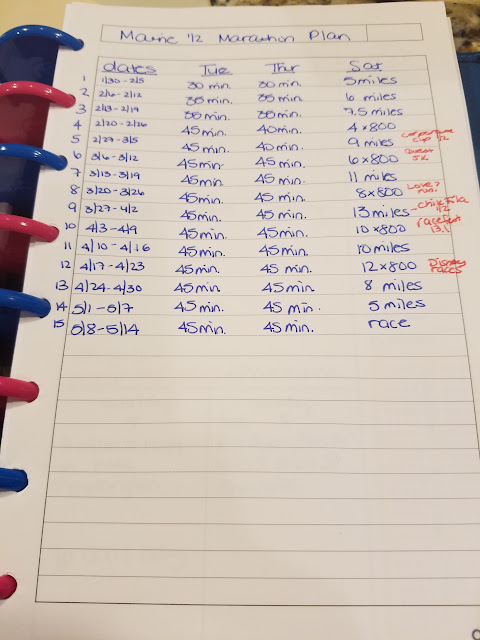 Maine 1/2 Marathon Plan
dates Tue Thur Sat
1 1/30-2/5 30 min. 30 min. 5 miles
2 2/6-2/12 35 min. 35 min. 6 miles
3 2/13-2/19 35 min. 35 min. 7.5 miles
4 2/20-2/26 45 min. 40 min. 4x800
5 2/27-3/5 45 min. 40 min. 9 miles cup 1/2
6 3/6-3/12 45 min. 45 min. 6x800 5K
7 3/13-3/19 45 min. 45 min. 11 miles
8 3/20-3/26 45 min. 45 min. 8x800 Love? run.
9 3/27-4/2 45 min. 45 min. 13 miles 1/2
10 4/3-4/9 45 min. 45 min. 10x800 13.1
11 4/10-4/16 45 min. 45 min. 10 miles
12 4/17-4/23 45 min. 45 min. 12x800 Disney races
13 4/24-4/30 45 min. 45 min 8 miles
14 5/1-5/7 45 min. 45 min. 5 miles
15 5/8-5/14 45 min. 45 min. race